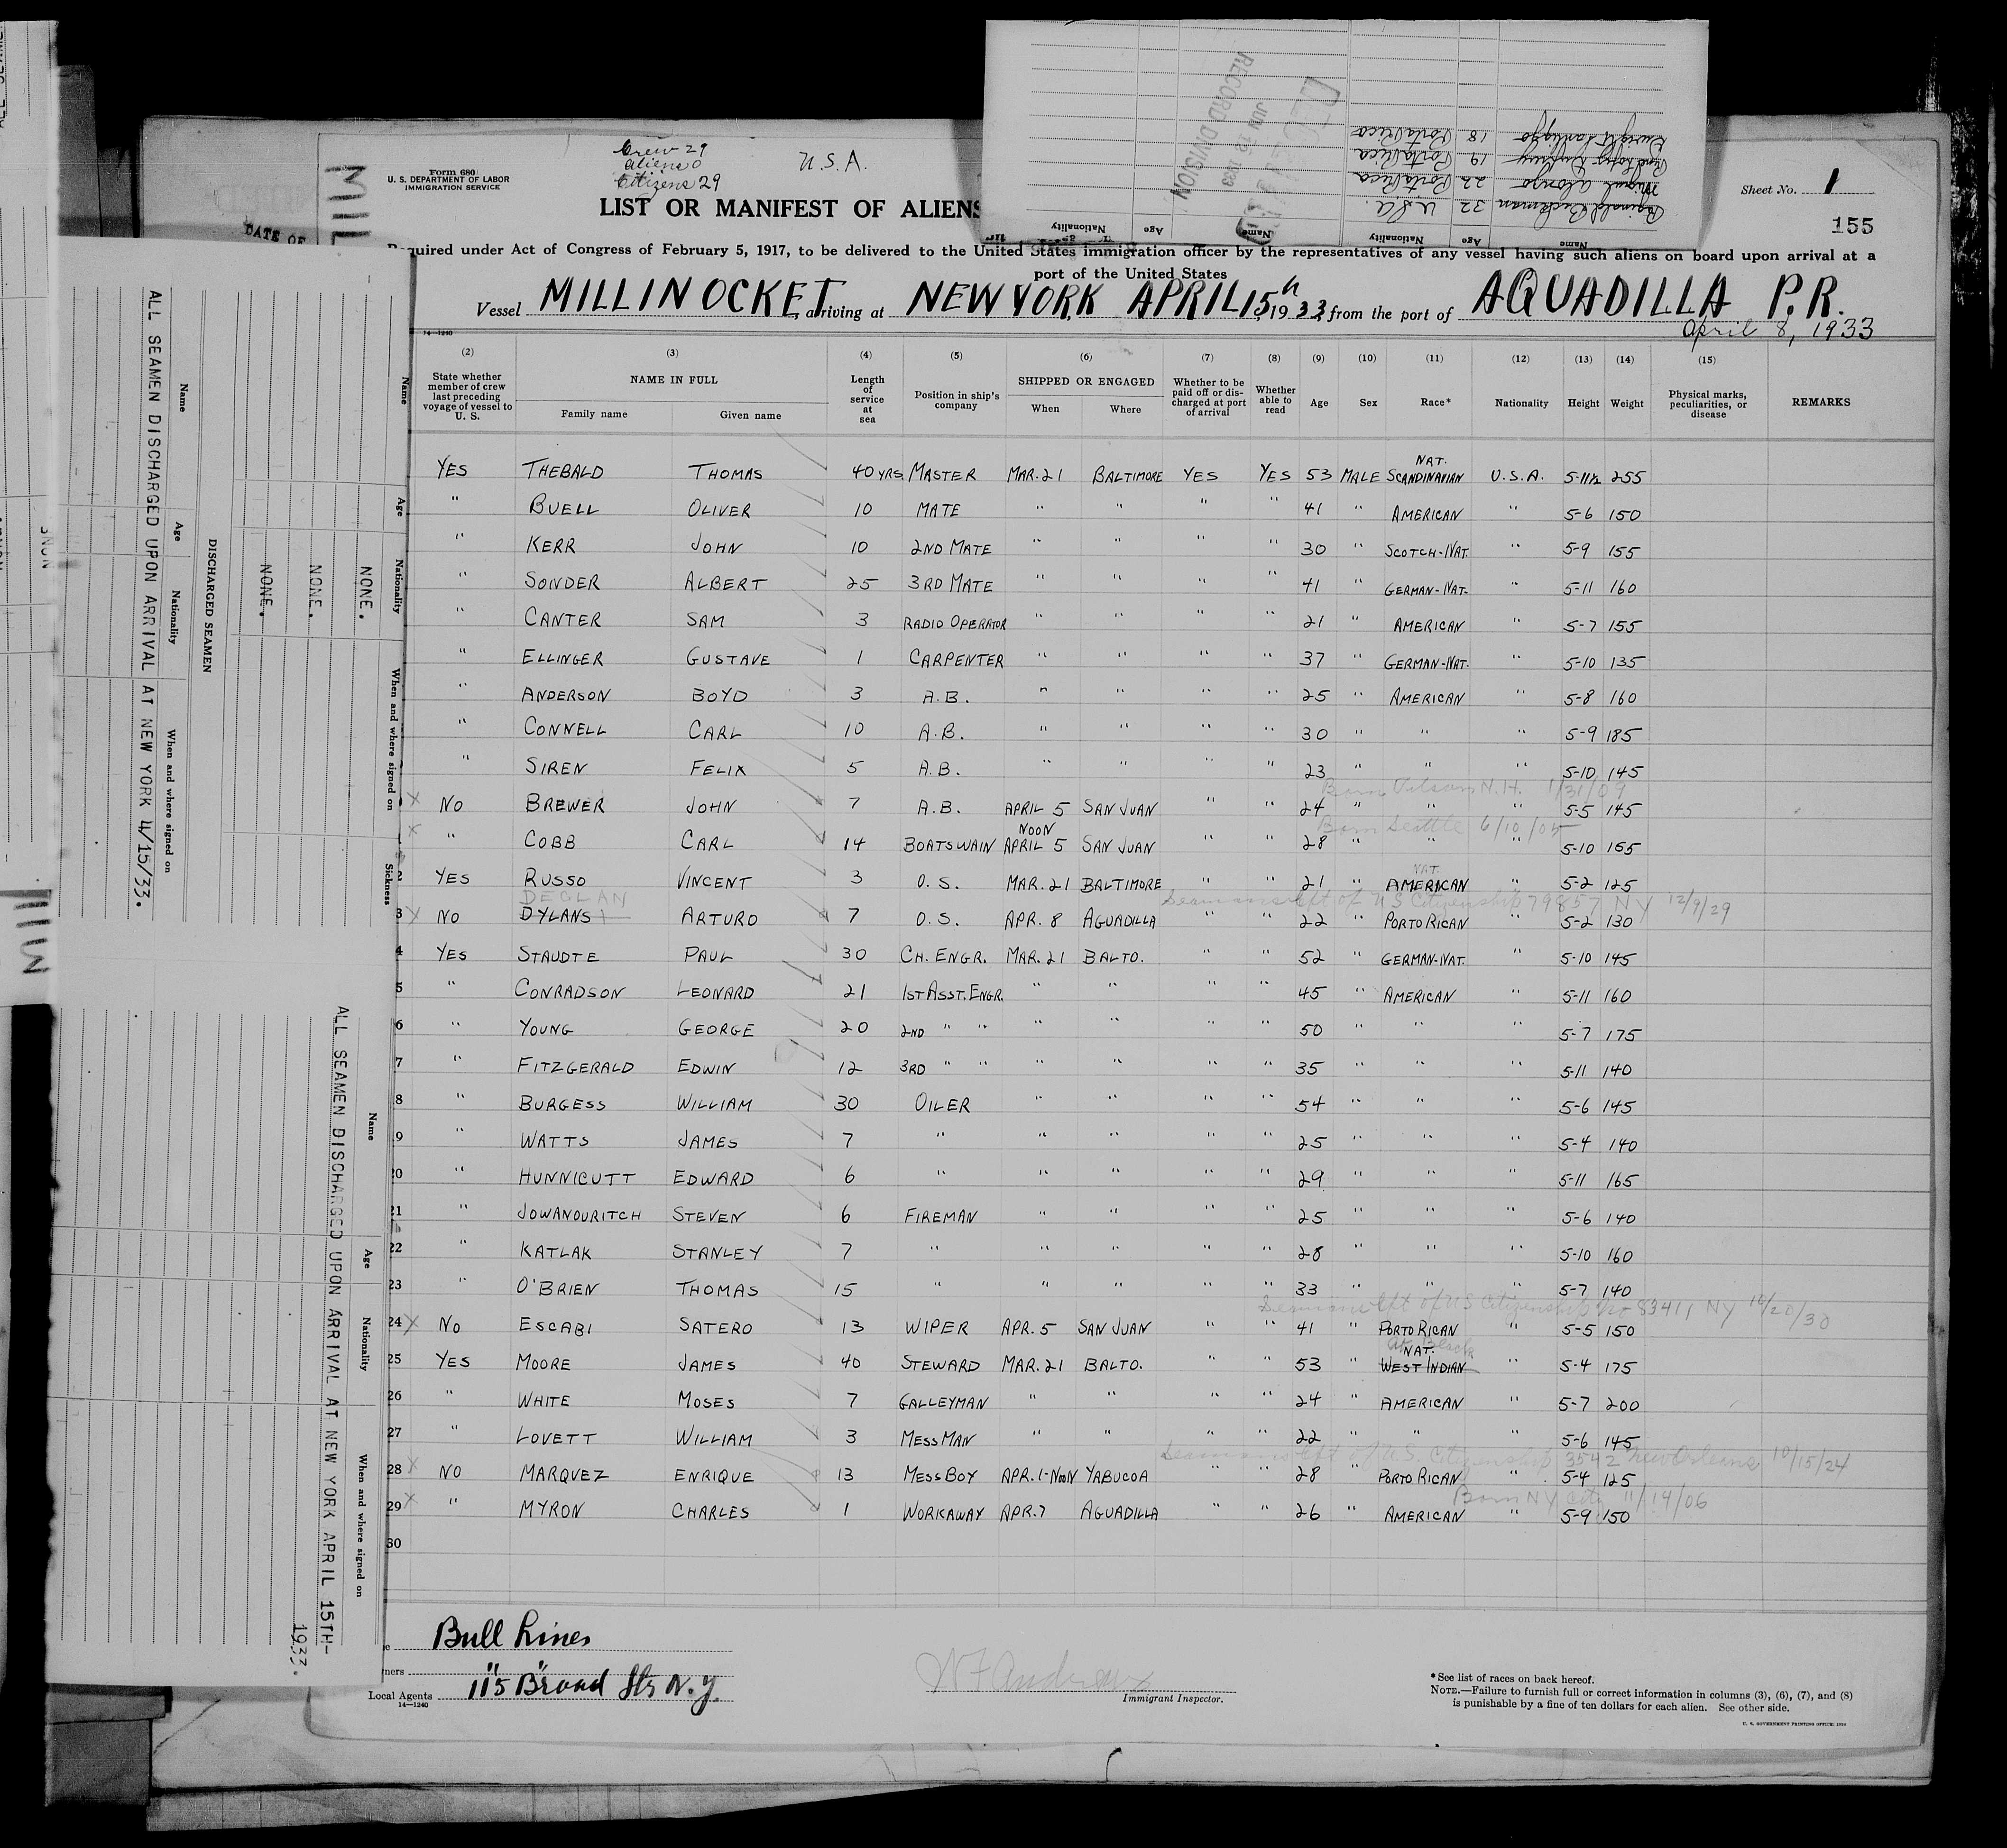 Form 680
U. S. DEPARTMENT OF LABOR
IMMIGRATION SERVICE
Crew 29
aliens 0
Citizens 29
U.S.A.
Sheet No. 1
155
LIST OR MANIFEST OF ALIENS
Required under Act of Congress of February 5, 1917, to be delivered to the United States immigration officer by the representatives of any vessel having such aliens on board upon arrival at a
port of the United States
Vessel MILLINOCKET, arriving at NEW YORK APRIL 15th, 1933, from the port of AQUADILLA P.R.
April 8, 1933
14—1240
(2) (3) (4) (5) (6) (7) (8) (9) (10) (11) (12) (13) (14) (15)
State whether member of crew last preceding voyage of vessel to U. S.
NAME IN FULL
Family name Given name
Length of service at sea
Position in ship's company
SHIPPED OR ENGAGED
When Where
Whether to be paid off or discharged at port of arrival
Whether able to read
Age Sex Race* Nationality Height Weight
Physical marks, peculiarities, or disease
REMARKS
YES THEBALD THOMAS 40 YRS. MASTER MAR. 21 BALTIMORE YES YES 53 MALE NAT. SCANDINAVIAN U.S.A. 5-11½ 255
" BUELL OLIVER 10 MATE " " " " 41 " AMERICAN " 5-6 150
" KERR JOHN 10 2ND MATE " " " " 30 " SCOTCH-NAT. " 5-9 155
" SONDER ALBERT 25 3RD MATE " " " " 41 " GERMAN-NAT. " 5-11 160
" CANTER SAM 3 RADIO OPERATOR " " " " 21 " AMERICAN " 5-7 155
" ELLINGER GUSTAVE 1 CARPENTER " " " " 37 " GERMAN-NAT. " 5-10 135
" ANDERSON BOYD 3 A.B. " " " " 25 " AMERICAN " 5-8 160
" CONNELL CARL 10 A.B. " " " " 30 " " " 5-9 185
" SIREN FELIX 5 A.B. " " " " 23 " " " 5-10 145
Born N.H. 1/31/09
X NO BREWER JOHN 7 A.B. APRIL 5 SAN JUAN " " 24 " " " 5-5 145
Born Seattle 6/10/05
X " COBB CARL 14 BOATSWAIN NOON APRIL 5 SAN JUAN " " 28 " " " 5-10 165
YES RUSSO VINCENT 3 O.S. MAR. 21 BALTIMORE " " 21 " NAT. AMERICAN " 5-2 125
DECLAN
Seamans cft of U S Citizenship 79857 NY 12/9/29
3 X NO DYLANS ARTURO 7 O.S. APR. 8 AGUADILLA " " 22 " PORTO RICAN " 5-2 130
4 YES STAUDTE PAUL 30 CH. ENGR. MAR. 21 BALTO. " " 52 " GERMAN-NAT. " 5-10 145
5 " CONRADSON LEONARD 21 1ST ASST. ENGR. " " " " 45 " AMERICAN " 5-11 160
6 " YOUNG GEORGE 20 2ND " " " " " " 50 " " " 5-7 175
7 " FITZGERALD EDWIN 12 3RD " " " " " " 35 " " " 5-11 140
8 " BURGESS WILLIAM 30 OILER " " " " 54 " " " 5-6 145
9 " WATTS JAMES 7 " " " " " 25 " " " 5-4 140
20 " HUNNICUTT EDWARD 6 " " " " " 29 " " " 5-11 165
21 " JOWANOURITCH STEVEN 6 FIREMAN " " " " 25 " " " 5-6 140
22 " KATLAK STANLEY 7 " " " " " 28 " " " 5-10 160
23 " O'BRIEN THOMAS 15 " " " " " 33 " " " 5-7 140
Seamans cft of U S Citizenship No 83411 NY 10/20/30
24 X NO ESCABI SATERO 13 WIPER APR. 5 SAN JUAN " " 41 " PORTO RICAN " 5-5 150
25 YES MOORE JAMES 40 STEWARD MAR. 21 BALTO. " " 53 " Black NAT. WEST INDIAN 5-4 175
26 " WHITE MOSES 7 GALLEYMAN " " " " 24 " AMERICAN " 5-7 200
27 " LOVETT WILLIAM 3 MESSMAN " " " " 22 " " " 5-6 145
Seamans cft of U S Citizenship 3542 New Orleans 10/15/24
28 X NO MARQUEZ ENRIQUE 13 MESSBOY APR. 1-NOON YABUCOA " " 28 " PORTO RICAN " 5-4 125
Born NY City 11/14/06
29 X " MYRON CHARLES 1 WORKAWAY APR. 7 AGUADILLA " " 26 " AMERICAN " 5-9 150
30
Bull Lines
Local Agents 115 Broad Str N.Y.
14—1240
Immigrant Inspector.
*See list of races on back hereof.
NOTE.—Failure to furnish full or correct information in columns (3), (6), (7), and (8)
is punishable by a fine of ten dollars for each alien. See other side.
U. S. GOVERNMENT PRINTING OFFICE
RECORD DIVISION
JUN 1933
Name Age Nationality
Reginald Beckman 32 U.S.A.
Miguel Alonzo 22 Porto Rica
19 Porto Rica
18 Porto Rica
DATE OF
ALL SEAMEN DISCHARGED UPON ARRIVAL AT NEW YORK 4/15/33.
Name Age Nationality When and where signed on
DISCHARGED SEAMEN
NONE.
NONE.
NONE.
Name Age Nationality When and where signed on Sickness
ALL SEAMEN DISCHARGED UPON ARRIVAL AT NEW YORK APRIL 15TH-
1933.
Name Age Nationality When and where signed on
MILL